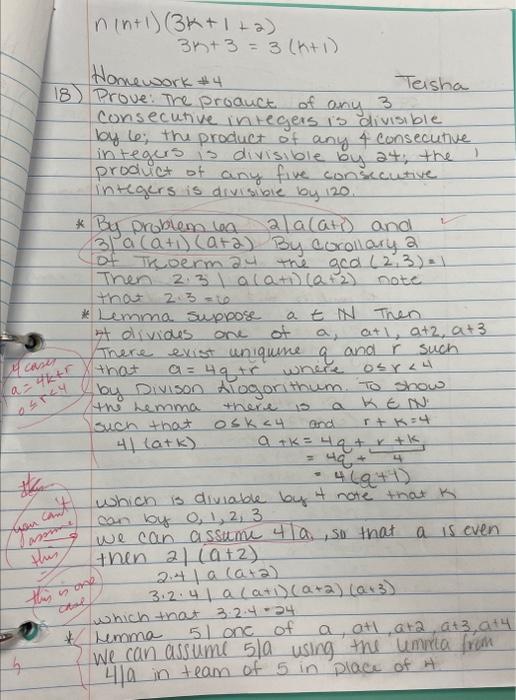 n(n+1)(3k+1+2)
3k+3 = 3(k+1)
Homework #4 Teisha
18) Prove: The product of any 3
consecutive integers is divisible
by 6; the product of any 4 consecutive
integers is divisible by 24; the
product of any five consecutive
integers is divisible by 120.
* By problem 2|a(a+1) and
3|a(a+1)(a+2) By Corollary 2
of Theorm 2.4 the gcd(2,3)=1
Then 2·3 | a(a+1)(a+2) note
that 2·3=6
* Lemma suppose a ∈ N Then
4 divides one of a, a+1, a+2, a+3
There exist uniqume q and r such
that a = 4q+r where 0≤r<4
by Divison Alogorithum. To show
the Lemma there is a K ∈ N
such that 0≤k<4 and r+k=4
4|(a+k) a+k = 4q + r+k
= 4q + 4
= 4(q+1)
which is diviable by 4 note that k
can by 0, 1, 2, 3
we can assume 4|a, so that a is even
then 2|(a+2)
2·4 | a(a+2)
3·2·4 | a(a+1)(a+2)(a+3)
which that 3·2·4=24
* Lemma 5| one of a, a+1, a+2, a+3, a+4
We can assume 5|a using the from
4|a in team of 5 in place of 4
4 cases
a=4k+r
0≤r<4
you can't
assume
this
this is one
case
5